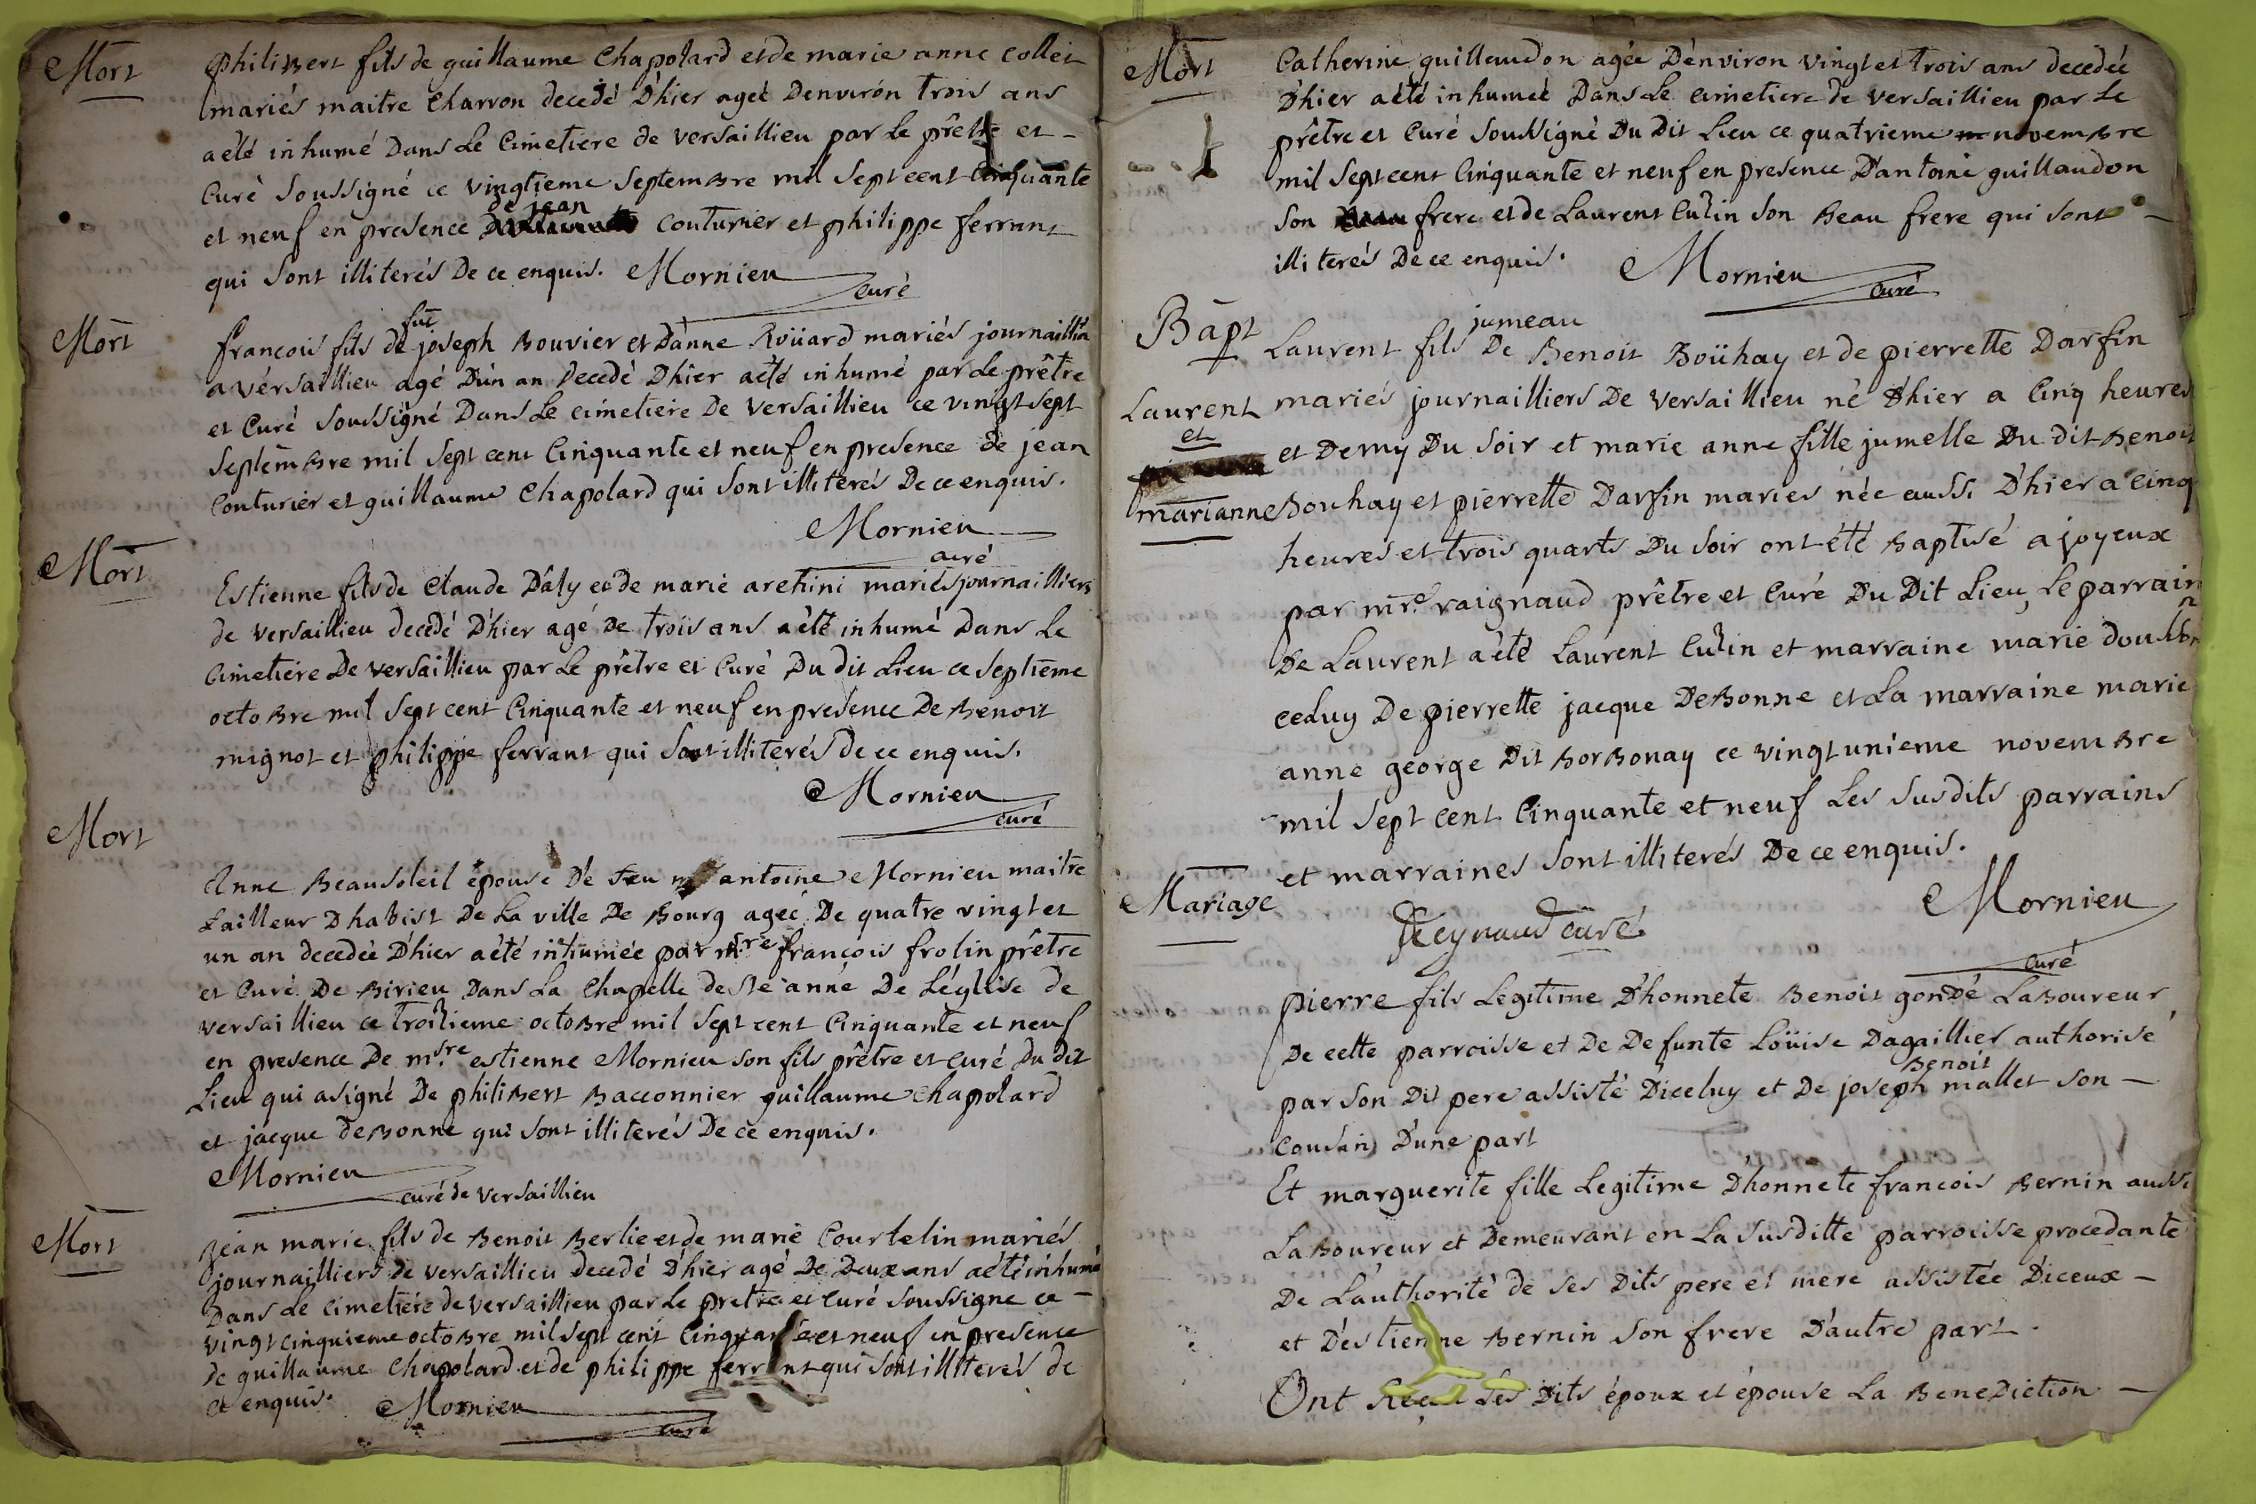 Mort
Philibert fils de guillaume Chapolard et de marie anne Collet
mariés maitre Charron decedé D'hier ageé Denviron trois ans
a été inhumé Dans Le Cimetiere de versaillieu par Le prêtre et -
Curé soussigné ce vingtieme septembre mil sept cent Cinquante
et neuf en presence de jean couturier et philippe ferrant
qui sont illiterés De ce enquis. Mornieu
curé
Mort
francois fils de fut joseph Bouvier et D'anne Roüard mariés journaillier
a versaillieu agé D'un an Decedé D'hier a été inhumé par Le prêtre
et Curé soussigné Dans Le cimetiere De versaillieu ce vingt sept
septembre mil sept cent Cinquante et neuf en presence de jean
Couturier et guillaume Chapolard qui sont illiterés De ce enquis.
Mornieu
curé
Mort
Estienne fils de Claude Dály et de marie mariés journailliers
de versaillieu decedé D'hier agé De trois ans a été inhumé Dans Le
Cimetiere De versaillieu par Le prêtre et Curé Du dit Lieu ce septieme
octobre mil sept cent Cinquante et neuf en presence De Benoit
mignot et philippe ferrant qui sont illiterés de ce enquis.
Mornieu
curé
Mort
Anne Beausoleil epouse De feu antoine Mornieu maitre
tailleur D habist De La ville De Bourg ageé De quatre vingt et
un an decedée D'hier a été inhumée par mre françois frolin prêtre
et Curé De Birieu Dans La Chapelle de ste anne De Léglise de
versaillieu ce troisieme octobre mil sept cent Cinquante et neuf
en presence De msre estienne Mornieu son fils prêtre et curé Du dit
Lieu qui a signé De philibert Bacconnier guillaume Chapolard
et jacque deBonne qui sont illiterés De ce enquis.
Mornieu
curé de versaillieu
Mort
Jean marie fils de Benoit Berlie et de marie Courtelin mariés
journailliers de versaillieu decedé D'hier agé De Deux ans a été inhumé
Dans Le Cimetiere de versaillieu par Le pretre et Curé soussigne ce -
vingt cinquieme octobre mil sept cent Cinquante et neuf en presence
de guillaume Chapolard et de philippe ferrant qui sont illiterés de
ce enquis. Mornieu
curé
Mort
Catherine guillaudon agée D'environ vingt et trois ans decedée
D'hier a été inhumeé Dans Le cimetiere de versaillieu par Le
prêtre et Curé soussigné Du Dit Lieu ce quatrieme novembre
mil sept cent Cinquante et neuf en presence D'antoine guillaudon
son frere et de Laurent Cutin son Beau frere qui sont -
illiterés De ce enquis. Mornieu
curé
Bapt
Laurent
et
marianne
Laurent fils jumeau De Benoit Boühay et de pierrette Darfin
mariés journailliers De versaillieu né D'hier a Cinq heures
et Demy Du soir et marie anne fille jumelle Du dit Benoit
Bouhay et pierrette Darfin maries née aussi D'hier a cinq
heures et trois quarts Du soir ont été Baptisé a joyeux
par mre raignaud prêtre et Curé Du Dit Lieu, Le parrain
De Laurent a été Laurent Cutin et marraine marie
celuy De pierrette jacque DeBonne et La marraine marie
anne george Dit BorBonay ce vingt unieme novembre
mil sept cent Cinquante et neuf Les susdits parrains
et marraines sont illiterés De ce enquis.
Mornieu
curé
Reynaud curé
Mariage
Pierre fils Legitime D'honnete Benoit gondé LaBoureur
De cette parroisse et De Defunte Loüise Dagaillier authorisé
par son Dit pere assisté Diceluy et De joseph Benoit mallet son -
Cousin D'une part
Et marguerite fille Legitime D'honnete francois Bernin aussi
LaBoureur et Demeurant en La susditte parroisse procedante
De L'authorité de ses Dits pere et mere assistée Diceux -
et D'estienne Bernin son frere D'autre part.
Ont Reçu Les Dits époux et épouse La Benediction -